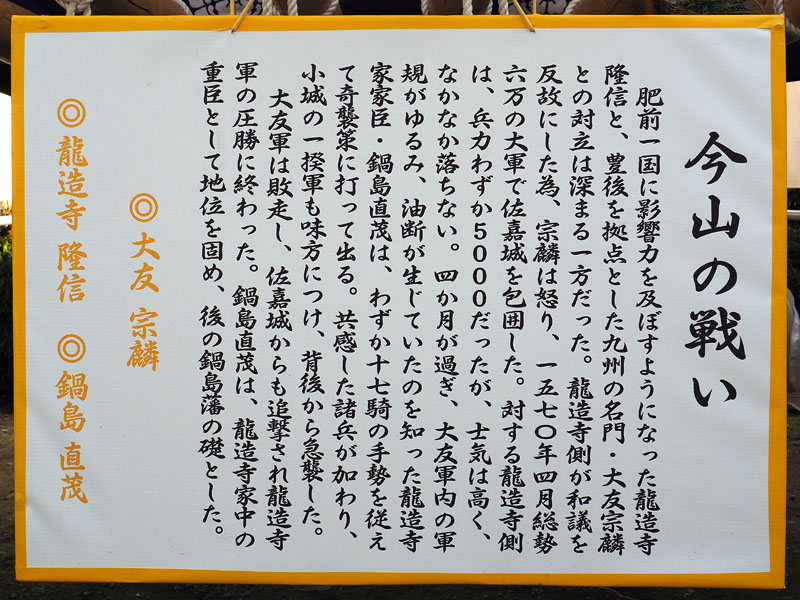 今山の戦い
肥前一国に影響力を及ぼすようになった龍造寺
隆信と、豊後を拠点とした九州の名門・大友宗麟
との対立は深まる一方だった。龍造寺側が和議を
反故にした為、宗麟は怒り、一五七〇年四月総勢
六万の大軍で佐嘉城を包囲した。対する龍造寺側
は、兵力わずか5000だったが、士気は高く、
なかなか落ちない。四か月が過ぎ、大友軍内の軍
規がゆるみ、油断が生じていたのを知った龍造寺
家家臣・鍋島直茂は、わずか十七騎の手勢を従え
て奇襲策に打って出る。共感した諸兵が加わり、
小城の一揆軍も味方につけ、背後から急襲した。
大友軍は敗走し、佐嘉城からも追撃され龍造寺
軍の圧勝に終わった。鍋島直茂は、龍造寺家中の
重臣として地位を固め、後の鍋島藩の礎とした。
◎大友 宗麟
◎龍造寺 隆信 ◎鍋島 直茂